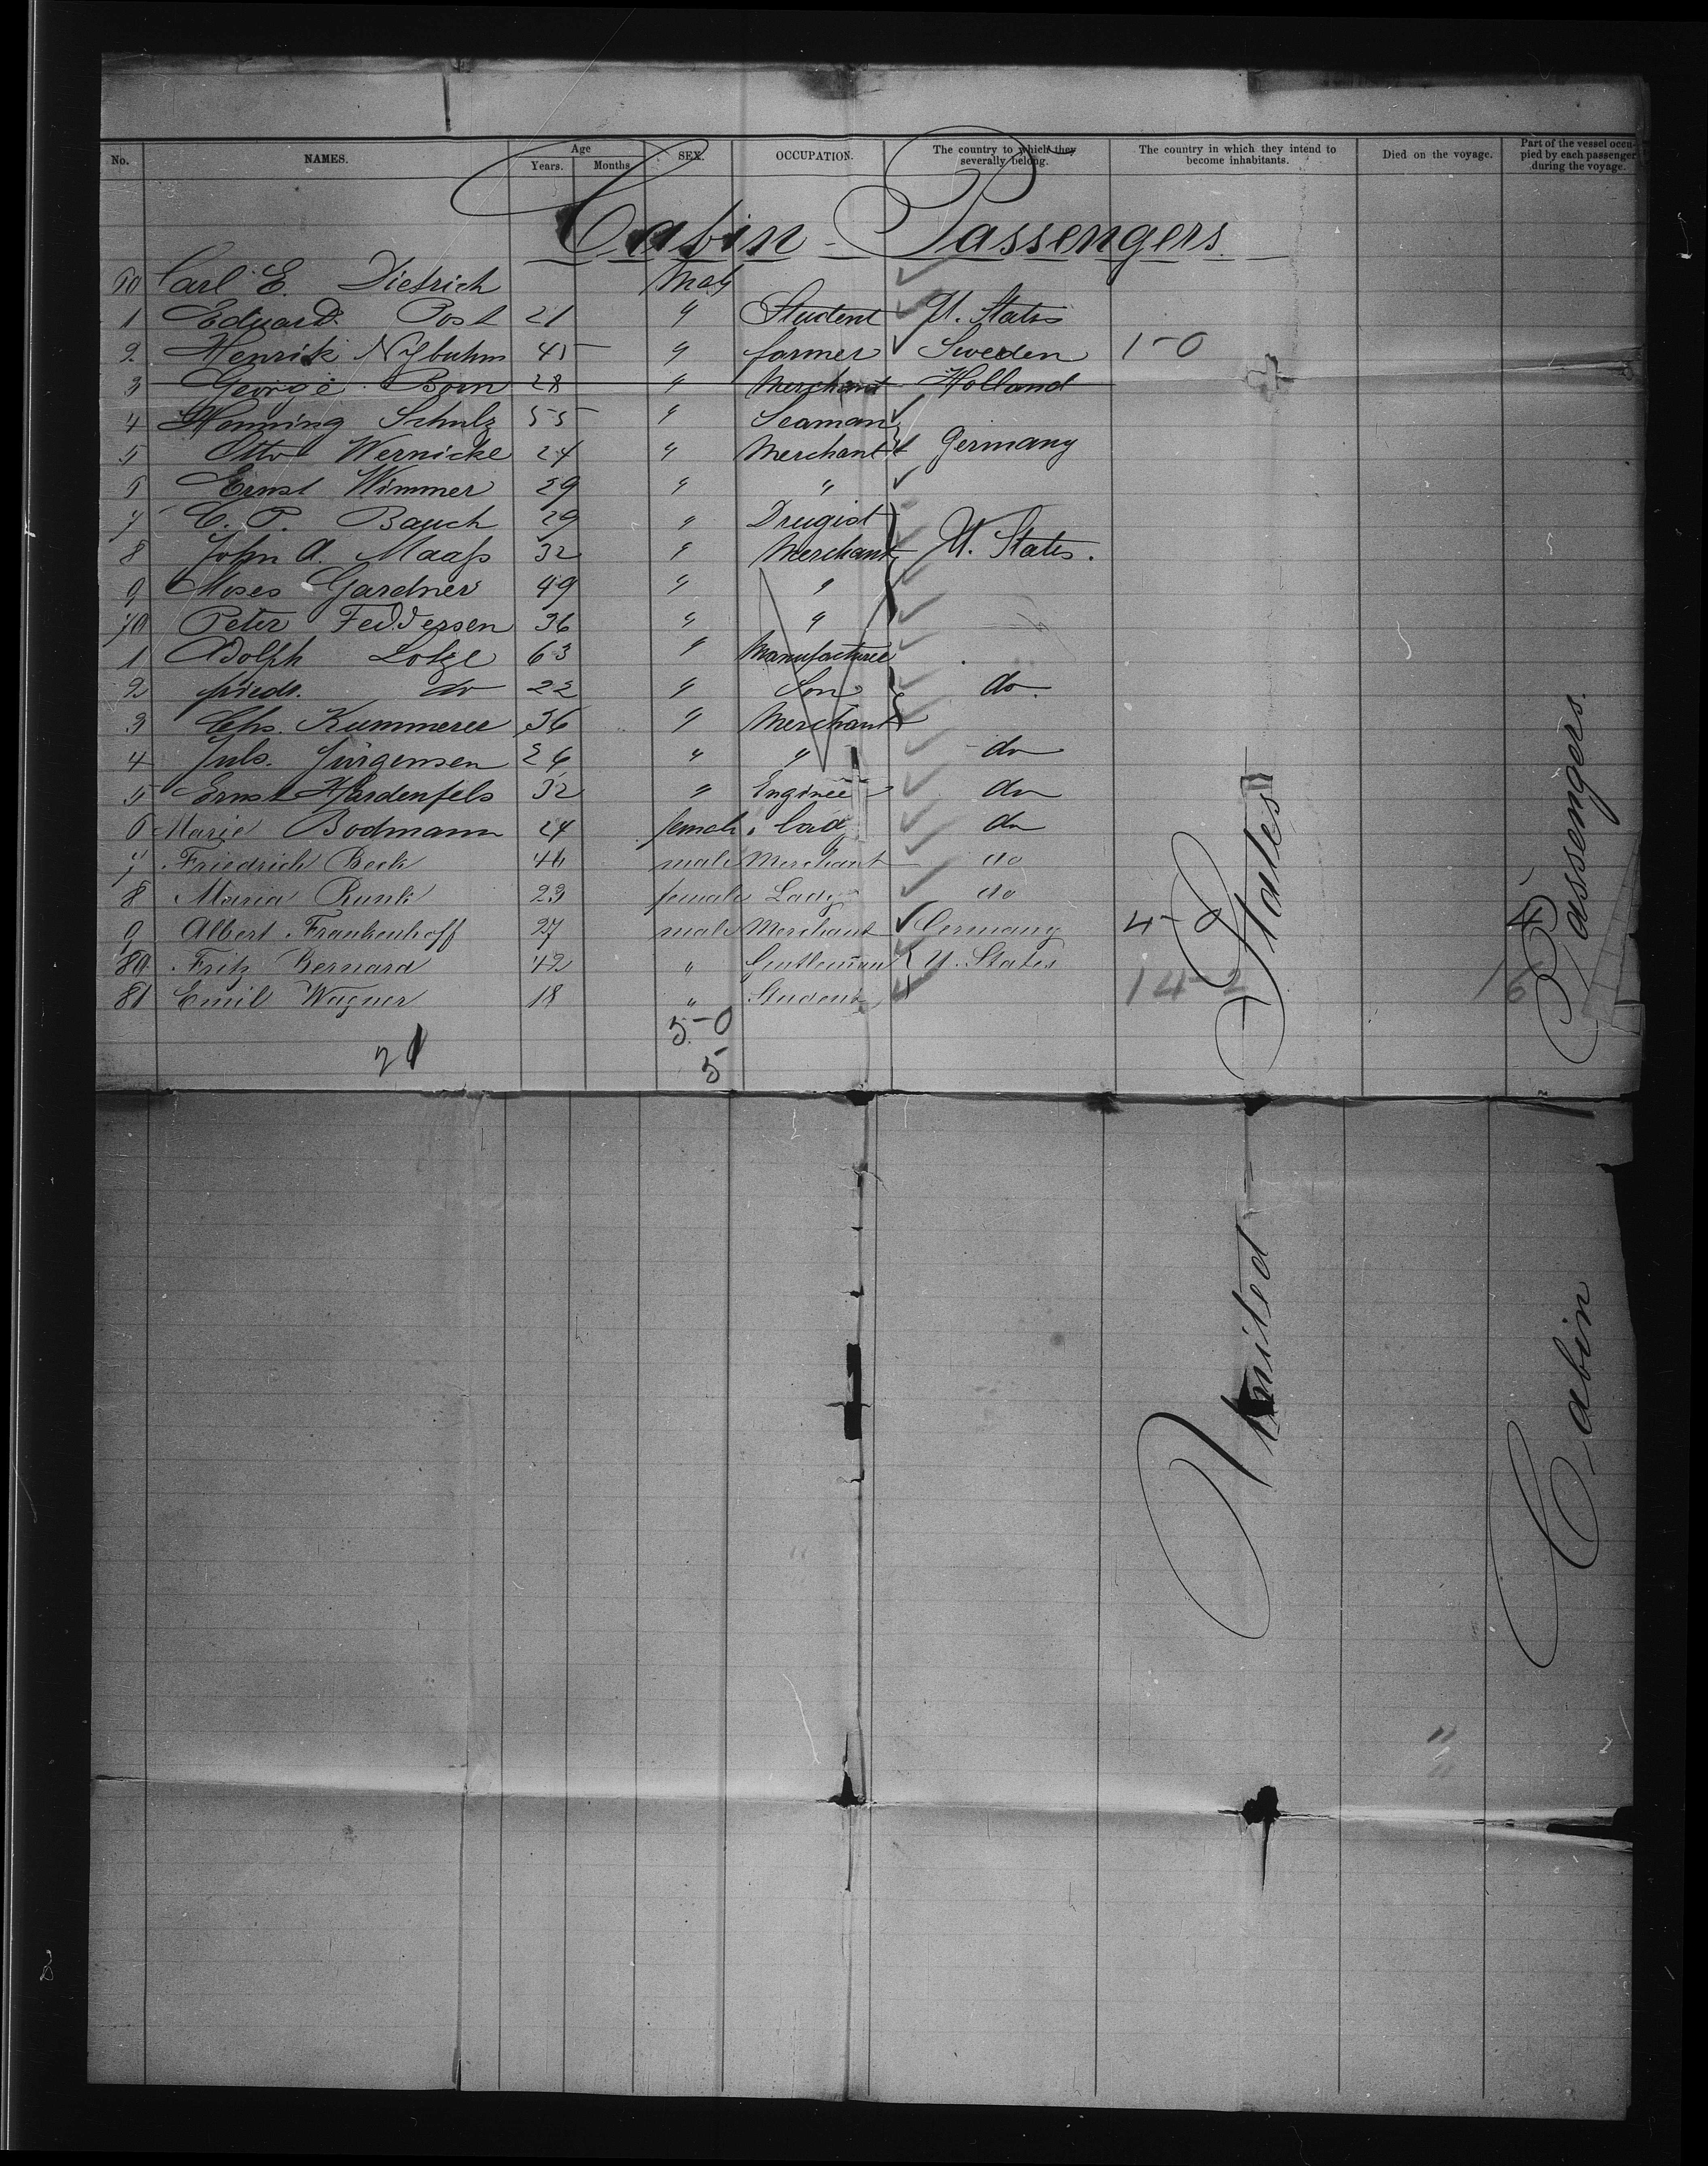 No. NAMES. Age Years. Months. SEX. OCCUPATION. The country to which they severally belong. The country in which they intend to become inhabitants. Died on the voyage. Part of the vessel occupied by each passenger during the voyage.
Cabin Passengers.
60 Carl E. Dietrich Male
1 Eduard Post 21 " Student U. States
2 Henrik 45 " farmer Sweden 1-0
3 George Born 28 " Merchant Holland
4 Henning Schulz 55 " Seaman
5 Otto Wernicke 24 " Merchant Germany
6 Ernst Wimmer 29 " "
7 C. P. Bauch 29 " Drugist
8 John A. Maass 32 " Merchant U. States.
9 Moses Gardner 49 " "
70 Peter Feddersen 36 " "
1 Adolph Lotze 63 " Manufacturer
2 friedr. do 22 " Son do.
3 Chs. Kummerer 36 " Merchant
4 Juls. Jürgensen 26 " " do
5 Ernst Hardenfels 32 " Engineer do
6 Marie Bodmann 24 female Lady do
7 Friedrich Beck 46 male Merchant do
8 Maria Runk 23 female Lady do
9 Albert Frankenhoff 27 male Merchant Germany 4-0
80 Fritz Bernard 42 " Gentleman U. States
81 Emil Wagner 18 " Student 14-2 16
5-0
21 5
United States
Cabin Passengers.